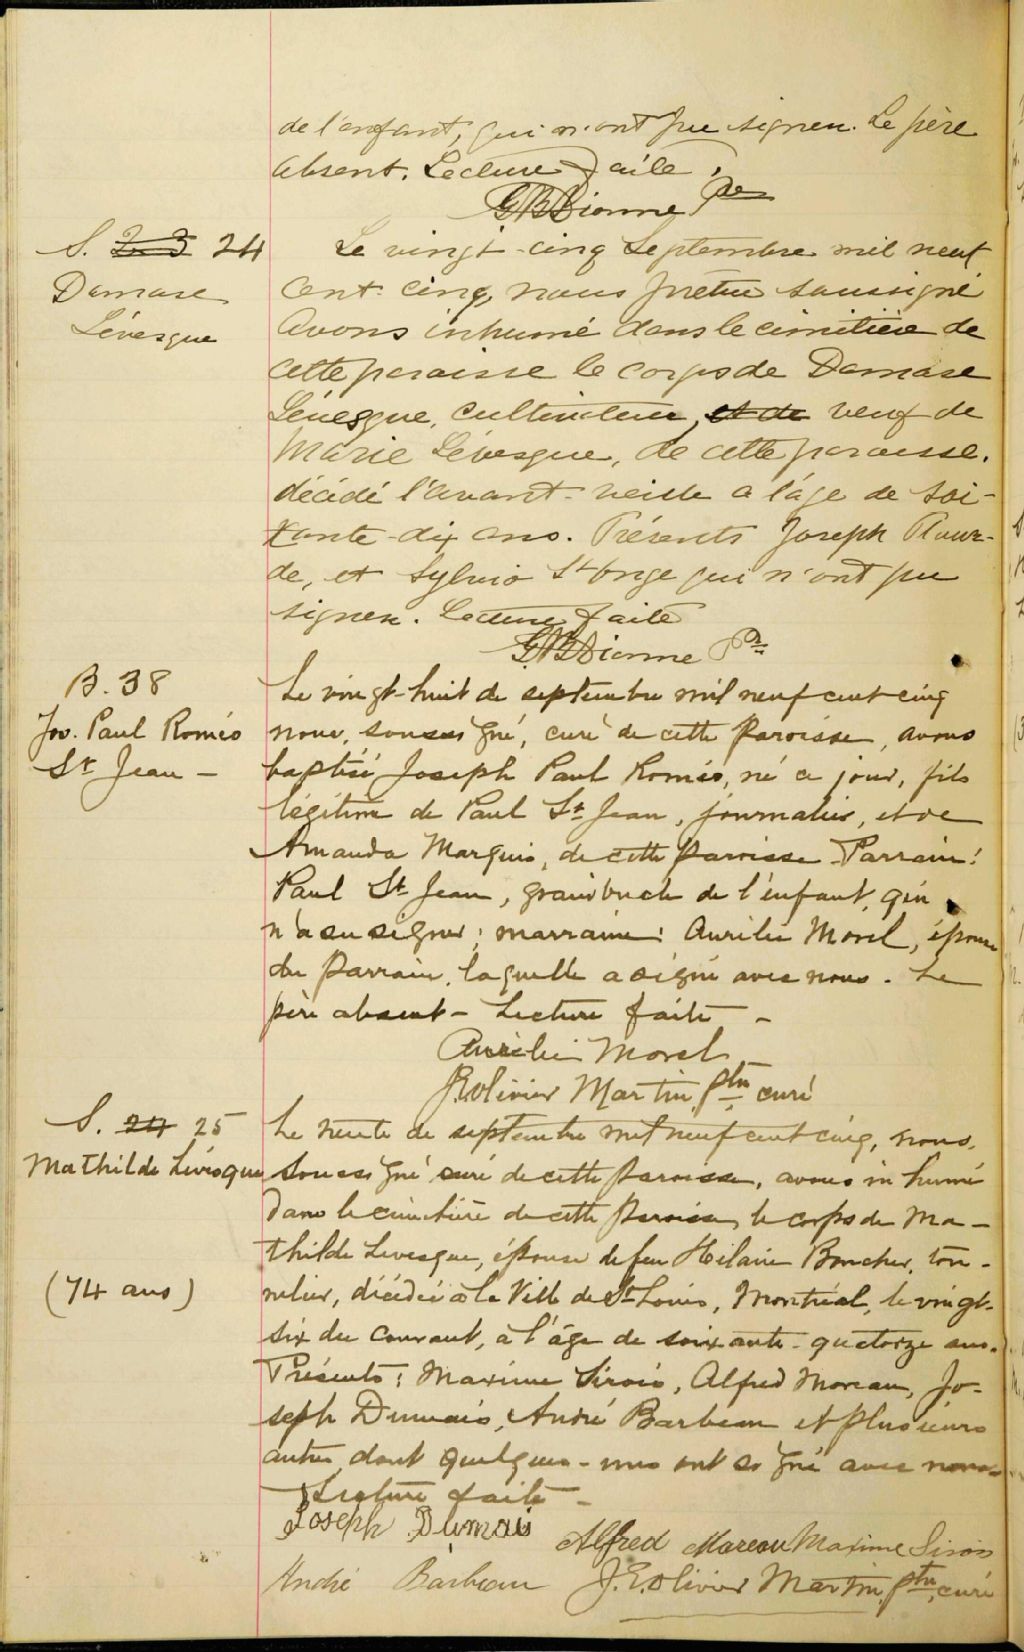 de l'enfant, qui n'ont pu signer. Le père
absent. Lecture faite.
G B Dionne Ptre
S. 23 24
Damase
Lévesque
Le vingt-cinq Septembre mil neuf
cent cinq, nous prêtre soussigné
avons inhumé dans le cimetière de
cette paroisse le corps de Damase
Lévesque, cultivateur, et de veuf de
Marie Lévesque, de cette paroisse.
décédé l'avant-veille a l'âge de soi-
xante-dix ans. Présents Joseph Plour-
de, et Sylvio St Onge qui n'ont pu
signer. Lecture faite
G B Dionne Ptre
B. 38
Jos. Paul Roméo
St Jean -
Le vingt-huit de septembre mil neuf cent cinq
nous, soussigné, curé de cette paroisse, avons
baptisé Joseph Paul Roméo, né ce jour, fils
légitime de Paul St Jean, journalier, et de
Amanda Marquis, de cette paroisse - Parrain:
Paul St Jean, grand'oncle de l'enfant, qui
n'a su signer; marraine: Aurélie Morel, épouse
du parrain, laquelle a signé avec nous. Le
père absent - Lecture faite -
Aurélie Morel
J. E. Olivier Martin, ptre curé
S. 24 25
Mathilde Lévesque
(74 ans)
Le trente de septembre mil neuf cent cinq, nous,
soussigné curé de cette paroisse, avons inhumé
dans le cimetière de cette paroisse, le corps de Ma-
thilde Levesque, épouse de feu Hilaire Boucher, ton-
nelier, décédée à la Ville de St Louis, Montréal, le vingt-
six du courant, à l'âge de soixante-quatorze ans.
Présents: Maxime Sirois, Alfred Moreau, Jo-
seph Dumais, André Barbeau et plusieurs
autres dont quelques-uns ont signé avec nous
- Lecture faite -
Joseph Dumais
Alfred Moreau Maxime Sirois
André Barbeau J. E. Olivier Martin, ptre, curé